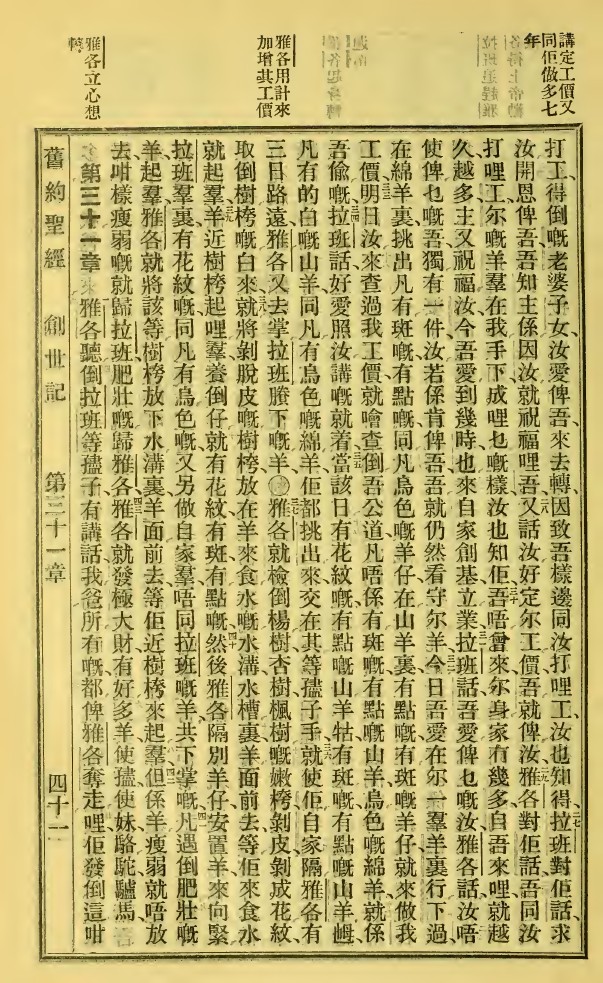 講定工價又
同佢做多七
年
雅各用計來
加增其工價
雅各立心想
轉
打工、得倒嘅老婆子女、汝愛俾吾來去轉、因致吾樣邊同汝打哩工、汝也知得、拉班對佢話、求
汝開恩俾吾、吾知主係因汝就祝福哩吾、又話汝好定尔工價吾就俾汝、雅各對佢話、吾同汝
打哩工、尔嘅羊羣在我手下成哩乜嘅樣、汝也知佢、吾唔曾來、尔身家有幾多、自吾來哩就越
久越多、主又祝福汝、今吾愛到幾時也來自家創基立業、拉班話、吾愛俾乜嘅汝、雅各話、汝唔
使俾乜嘅吾、獨有一件、汝若係肯俾吾、吾就仍然看守尔羊、今日吾愛在尔一羣羊裏行下過、
在綿羊裏挑出凡有斑嘅有點嘅、同凡烏色嘅羊仔、在山羊裏有點嘅有斑嘅羊仔、就來做我
工價、明日汝來查過我工價、就噲查倒吾公道、凡唔係有斑嘅有點嘅山羊、烏色嘅綿羊、就係
吾偸嘅、拉班話、好、愛照汝講嘅就着、當該日有花紋嘅有點嘅山羊牯、有斑嘅有點嘅山羊𡜵、
凡有的白嘅山羊、同凡有烏色嘅綿羊、佢都挑出來、交在其等孻子手、就使佢自家隔雅各有
三日路遠、雅各又去掌拉班賸下嘅羊〇雅各就檢倒楊樹杏樹楓樹嘅嫩桍、剝皮剝成花紋、
取倒樹桍嘅白來、就將剝脫皮嘅樹桍、放在羊來食水嘅水溝水槽裏、羊面前去、等佢來食水
就起羣、羊近樹桍起哩羣、養倒仔就有花紋有斑有點嘅、然後雅各隔別羊仔、安置羊來向緊
拉班羣裏、有花紋嘅、同凡有烏色嘅、又另做自家羣、唔同拉班嘅羊共下掌嘅、凡遇倒肥壯嘅
羊起羣、雅各就將該等樹桍放下水溝裏、羊面前去、等佢近樹桍來起羣、但係羊瘦弱就唔放
去、咁樣瘦弱嘅就歸拉班、肥壯嘅歸雅各、雅各就發極大財、有好多羊、使孻使妹、駱駝、驢馬、
第三十一章 雅各聽倒拉班等孻子有講話、我爸所有嘅、都俾雅各奪走哩、佢發倒這咁
舊約聖經 創世記 第三十一章 四十一